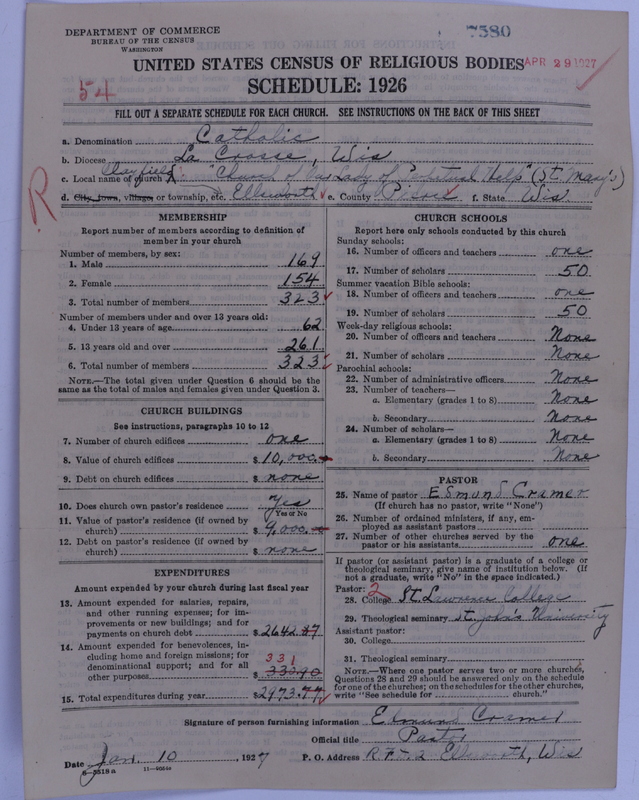 DEPARTMENT OF COMMERCE
BUREAU OF THE CENSUS
WASHINGTON
7580
UNITED STATES CENSUS OF RELIGIOUS BODIES
APR 29 1927
SCHEDULE: 1926
54
FILL OUT A SEPARATE SCHEDULE FOR EACH CHURCH. SEE INSTRUCTIONS ON THE BACK OF THIS SHEET
a. Denomination Catholic
b. Diocese La Crosse, Wis
c. Local name of church Clayfield "Church of Our Lady of Perpetual Help" (St. Mary's)
R
d. City, town, village, or township, etc. Ellsworth e. County Pierce f. State Wis.
MEMBERSHIP
Report number of members according to definition of
member in your church
Number of members, by sex:
1. Male 169
2. Female 154
3. Total number of members 323
Number of members under and over 13 years old:
4. Under 13 years of age 62
5. 13 years old and over 261
6. Total number of members 323
NOTE.—The total given under Question 6 should be the
same as the total of males and females given under Question 3.
CHURCH BUILDINGS
See instructions, paragraphs 10 to 12
7. Number of church edifices one
8. Value of church edifices $ 10,000.
9. Debt on church edifices $ none
10. Does church own pastor's residence? Yes
Yes or No
11. Value of pastor's residence (if owned by
church) $ 9,000.
12. Debt on pastor's residence (if owned by
church) $ none
EXPENDITURES
Amount expended by your church during last fiscal year
13. Amount expended for salaries, repairs,
and other running expenses; for im-
provements or new buildings; and for
payments on church debt $ 2642.87
14. Amount expended for benevolences, in-
cluding home and foreign missions; for
denominational support; and for all
other purposes $ 331
333.90
15. Total expenditures during year $ 2973.77
CHURCH SCHOOLS
Report here only schools conducted by this church
Sunday schools:
16. Number of officers and teachers one
17. Number of scholars 50
Summer vacation Bible schools:
18. Number of officers and teachers one
19. Number of scholars 50
Week-day religious schools:
20. Number of officers and teachers None
21. Number of scholars None
Parochial schools:
22. Number of administrative officers None
23. Number of teachers—
a. Elementary (grades 1 to 8) None
b. Secondary None
24. Number of scholars—
a. Elementary (grades 1 to 8) None
b. Secondary None
PASTOR
25. Name of pastor Edmund Cramer
(If church has no pastor, write "None")
26. Number of ordained ministers, if any, em-
ployed as assistant pastors
27. Number of other churches served by the
pastor or his assistants one
If pastor (or assistant pastor) is a graduate of a college or
theological seminary, give name of institution below. (If
not a graduate, write "No" in the space indicated.)
Pastor: 2
28. College St. Lawrence College
29. Theological seminary St. John's University
Assistant pastor:
30. College
31. Theological seminary
NOTE.—Where one pastor serves two or more churches,
Questions 28 and 29 should be answered only on the schedule
for one of the churches; on the schedules for the other churches,
write "See schedule for church."
Signature of person furnishing information Edmund Cramer
Official title Pastor
Date Jan. 10, 1927 P. O. Address R.F.D. 2 Ellsworth, Wis
8—5318a 11—9064a